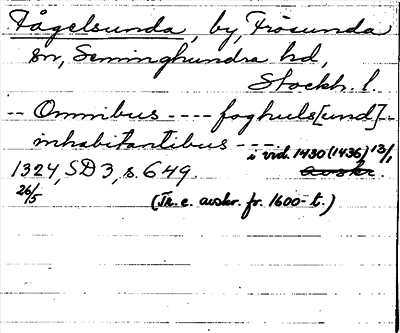 Fågelsunda, by, Frösunda
sn, Seminghundra hd,
Stockh. l.
-- Omnibus ---- foghuls[und]--
inhabitantibus ----
i vid. 1430 (1436) 13/1
1324, SD 3, s. 649. avskr.
26/5 (Tr. e. avskr. fr. 1600-t.)